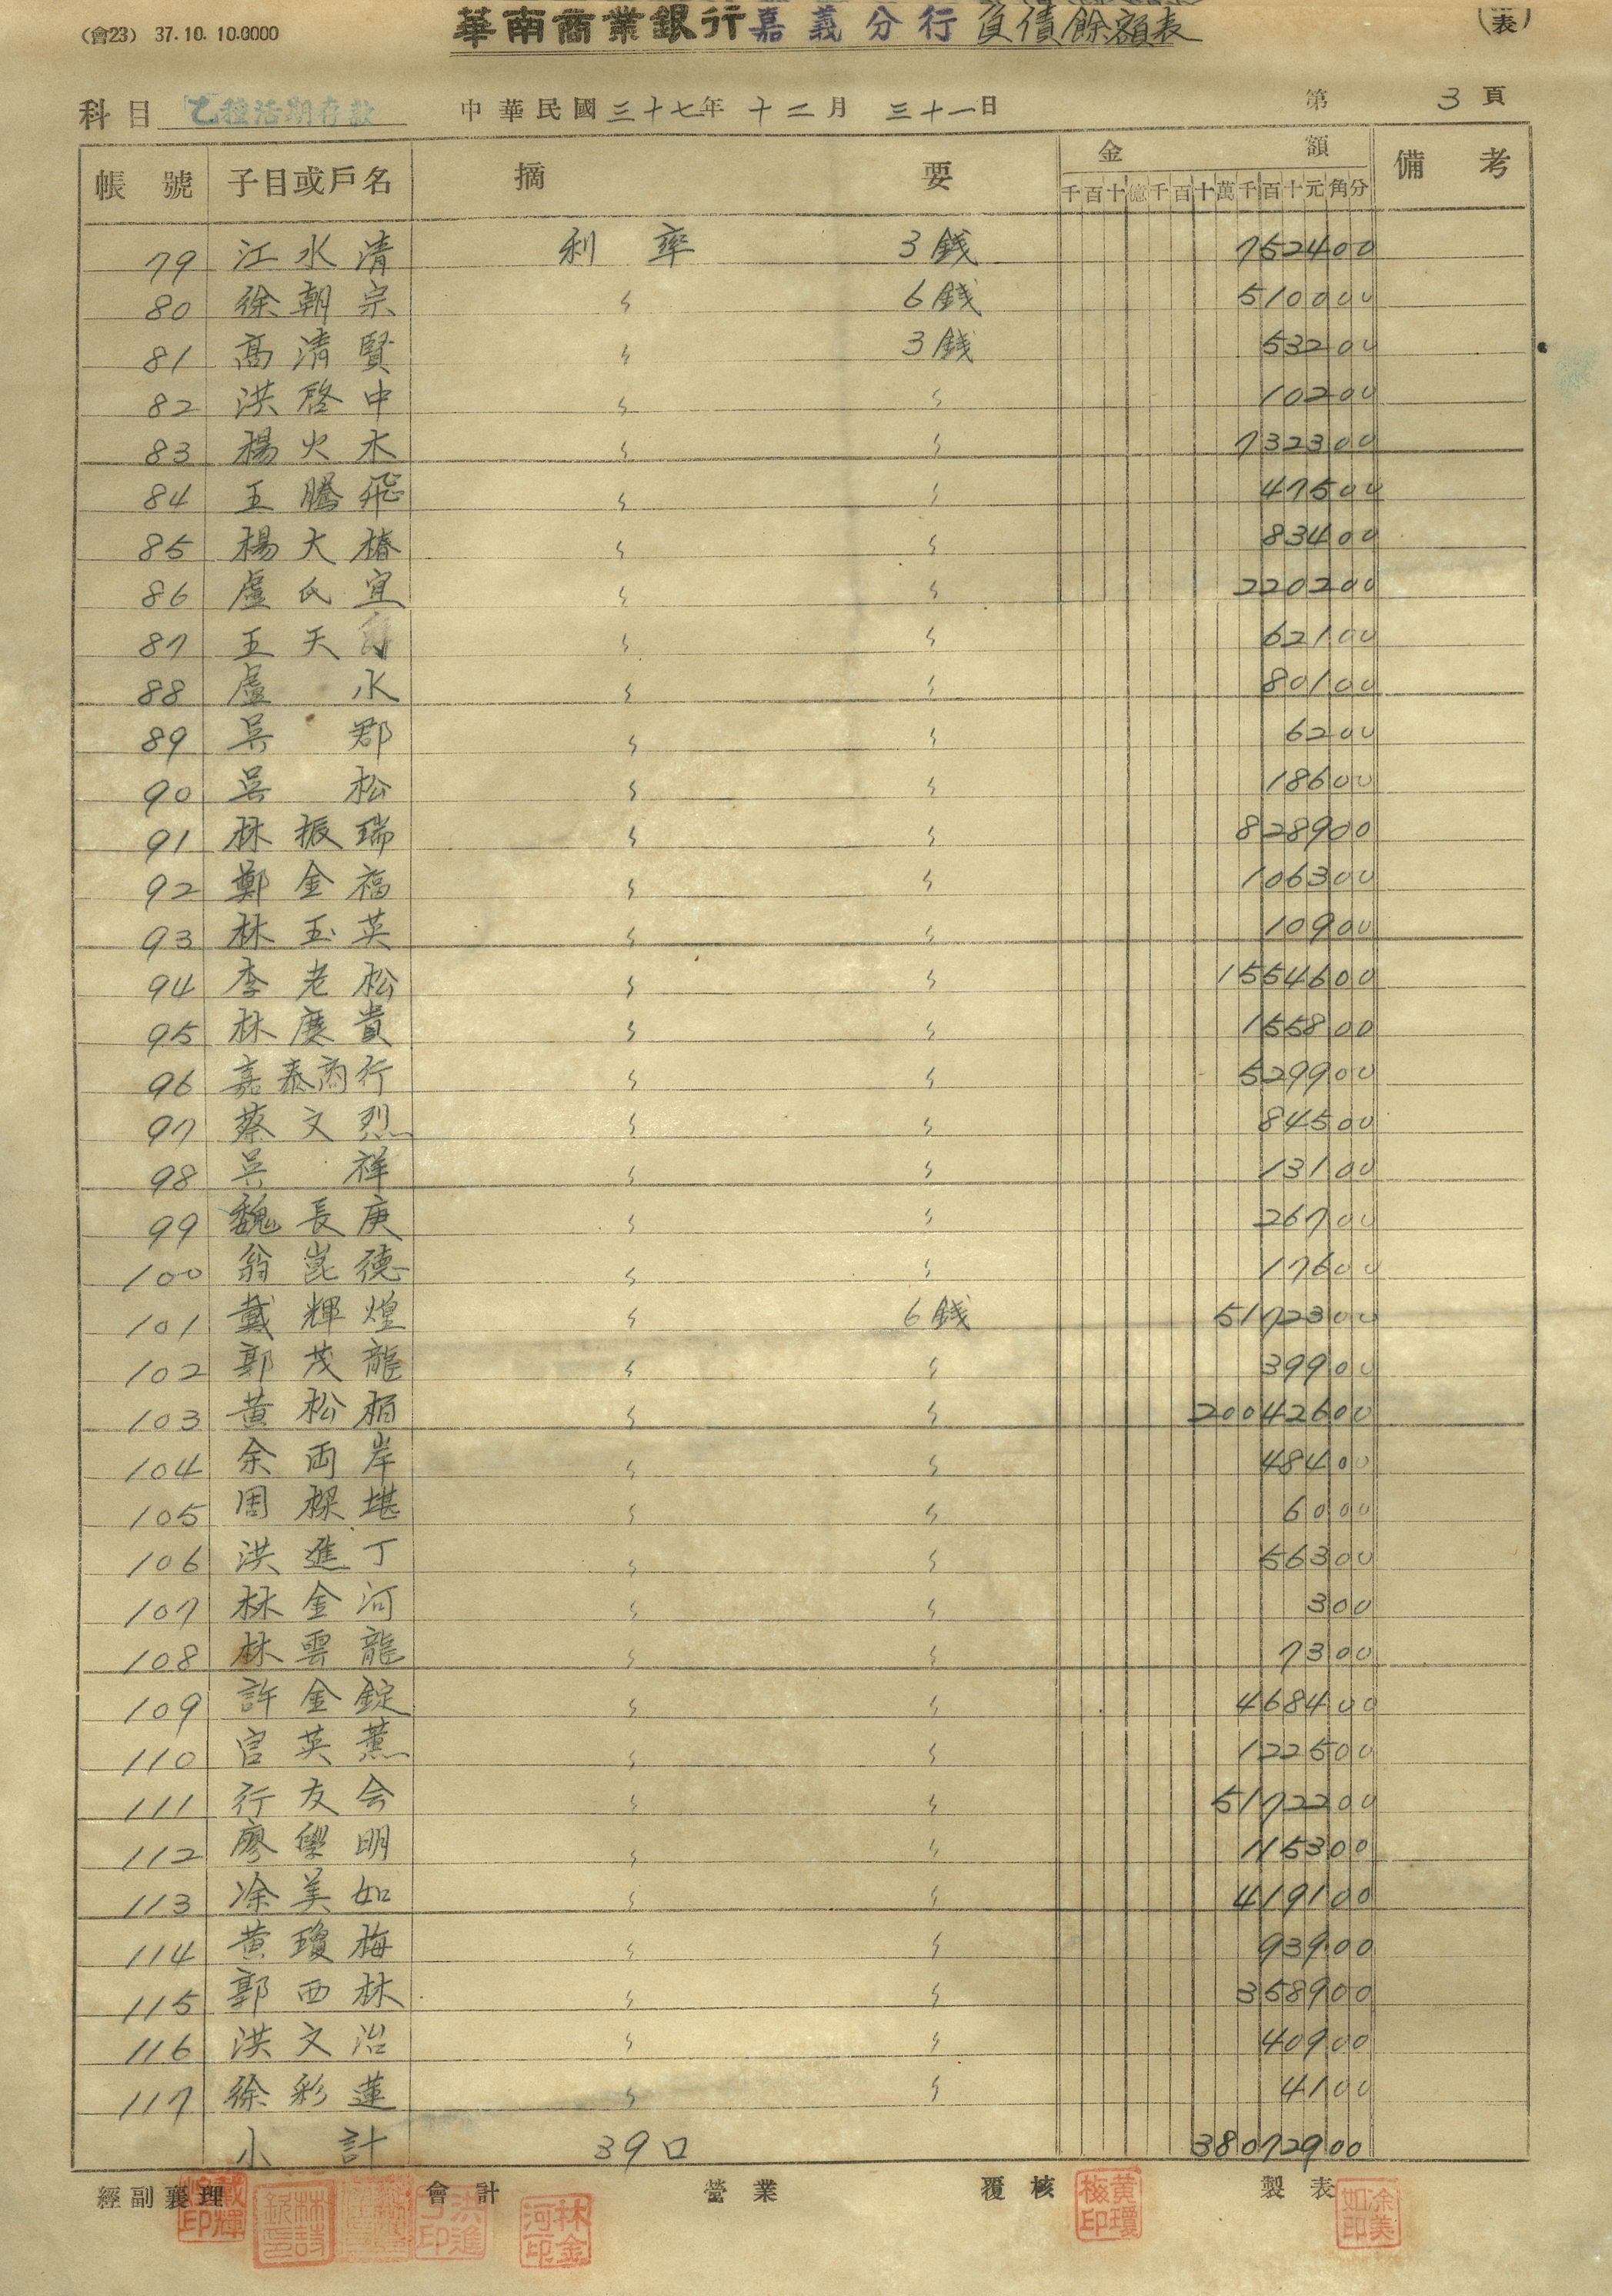 (會23) 37.10.10.0000
華南商業銀行嘉義分行負債餘額表
(表)
科目 乙種活期存款 中華民國三十七年十二月三十一日 第3頁
帳號 子目或戶名 摘要 金額 備考
千百十億千百十萬千百十元角分
79 江水清 利率 3錢 752400
80 徐朝宗 〃 6錢 510000
81 高清賢 〃 3錢 53200
82 洪啓中 〃 〃 10200
83 楊火木 〃 〃 732300
84 王騰飛 〃 〃 47500
85 楊大椿 〃 〃 83400
86 盧氏宜 〃 〃 220200
87 王天 〃 〃 62100
88 盧水 〃 〃 80100
89 吳郡 〃 〃 6200
90 吳松 〃 〃 18600
91 林振瑞 〃 〃 828900
92 鄭金福 〃 〃 106300
93 林玉英 〃 〃 10900
94 李老松 〃 〃 1554600
95 林慶貴 〃 〃 155800
96 嘉泰商行 〃 〃 529900
97 蔡文烈 〃 〃 84500
98 吳祥 〃 〃 13100
99 魏長庚 〃 〃 26700
100 翁崑德 〃 〃 17600
101 戴輝煌 〃 6錢 5172300
102 郭茂龍 〃 〃 39900
103 黃松栢 〃 〃 20042600
104 余両岸 〃 〃 48400
105 周樑堪 〃 〃 6000
106 洪進丁 〃 〃 56300
107 林金河 〃 〃 300
108 林雲龍 〃 〃 7300
109 許金錠 〃 〃 468400
110 官英薫 〃 〃 122500
111 行友会 〃 〃 5172200
112 廖學明 〃 〃 115300
113 凃美如 〃 〃 419100
114 黃瓊梅 〃 〃 93900
115 郭西林 〃 〃 358900
116 洪文治 〃 〃 40900
117 徐彩蓮 〃 〃 4100
小計 39口 38072900
經副襄理 會計 營業 覆核 製表
戴輝煌印 林詩欽印 洪進丁印 林金河印 黃瓊梅印 凃美如印